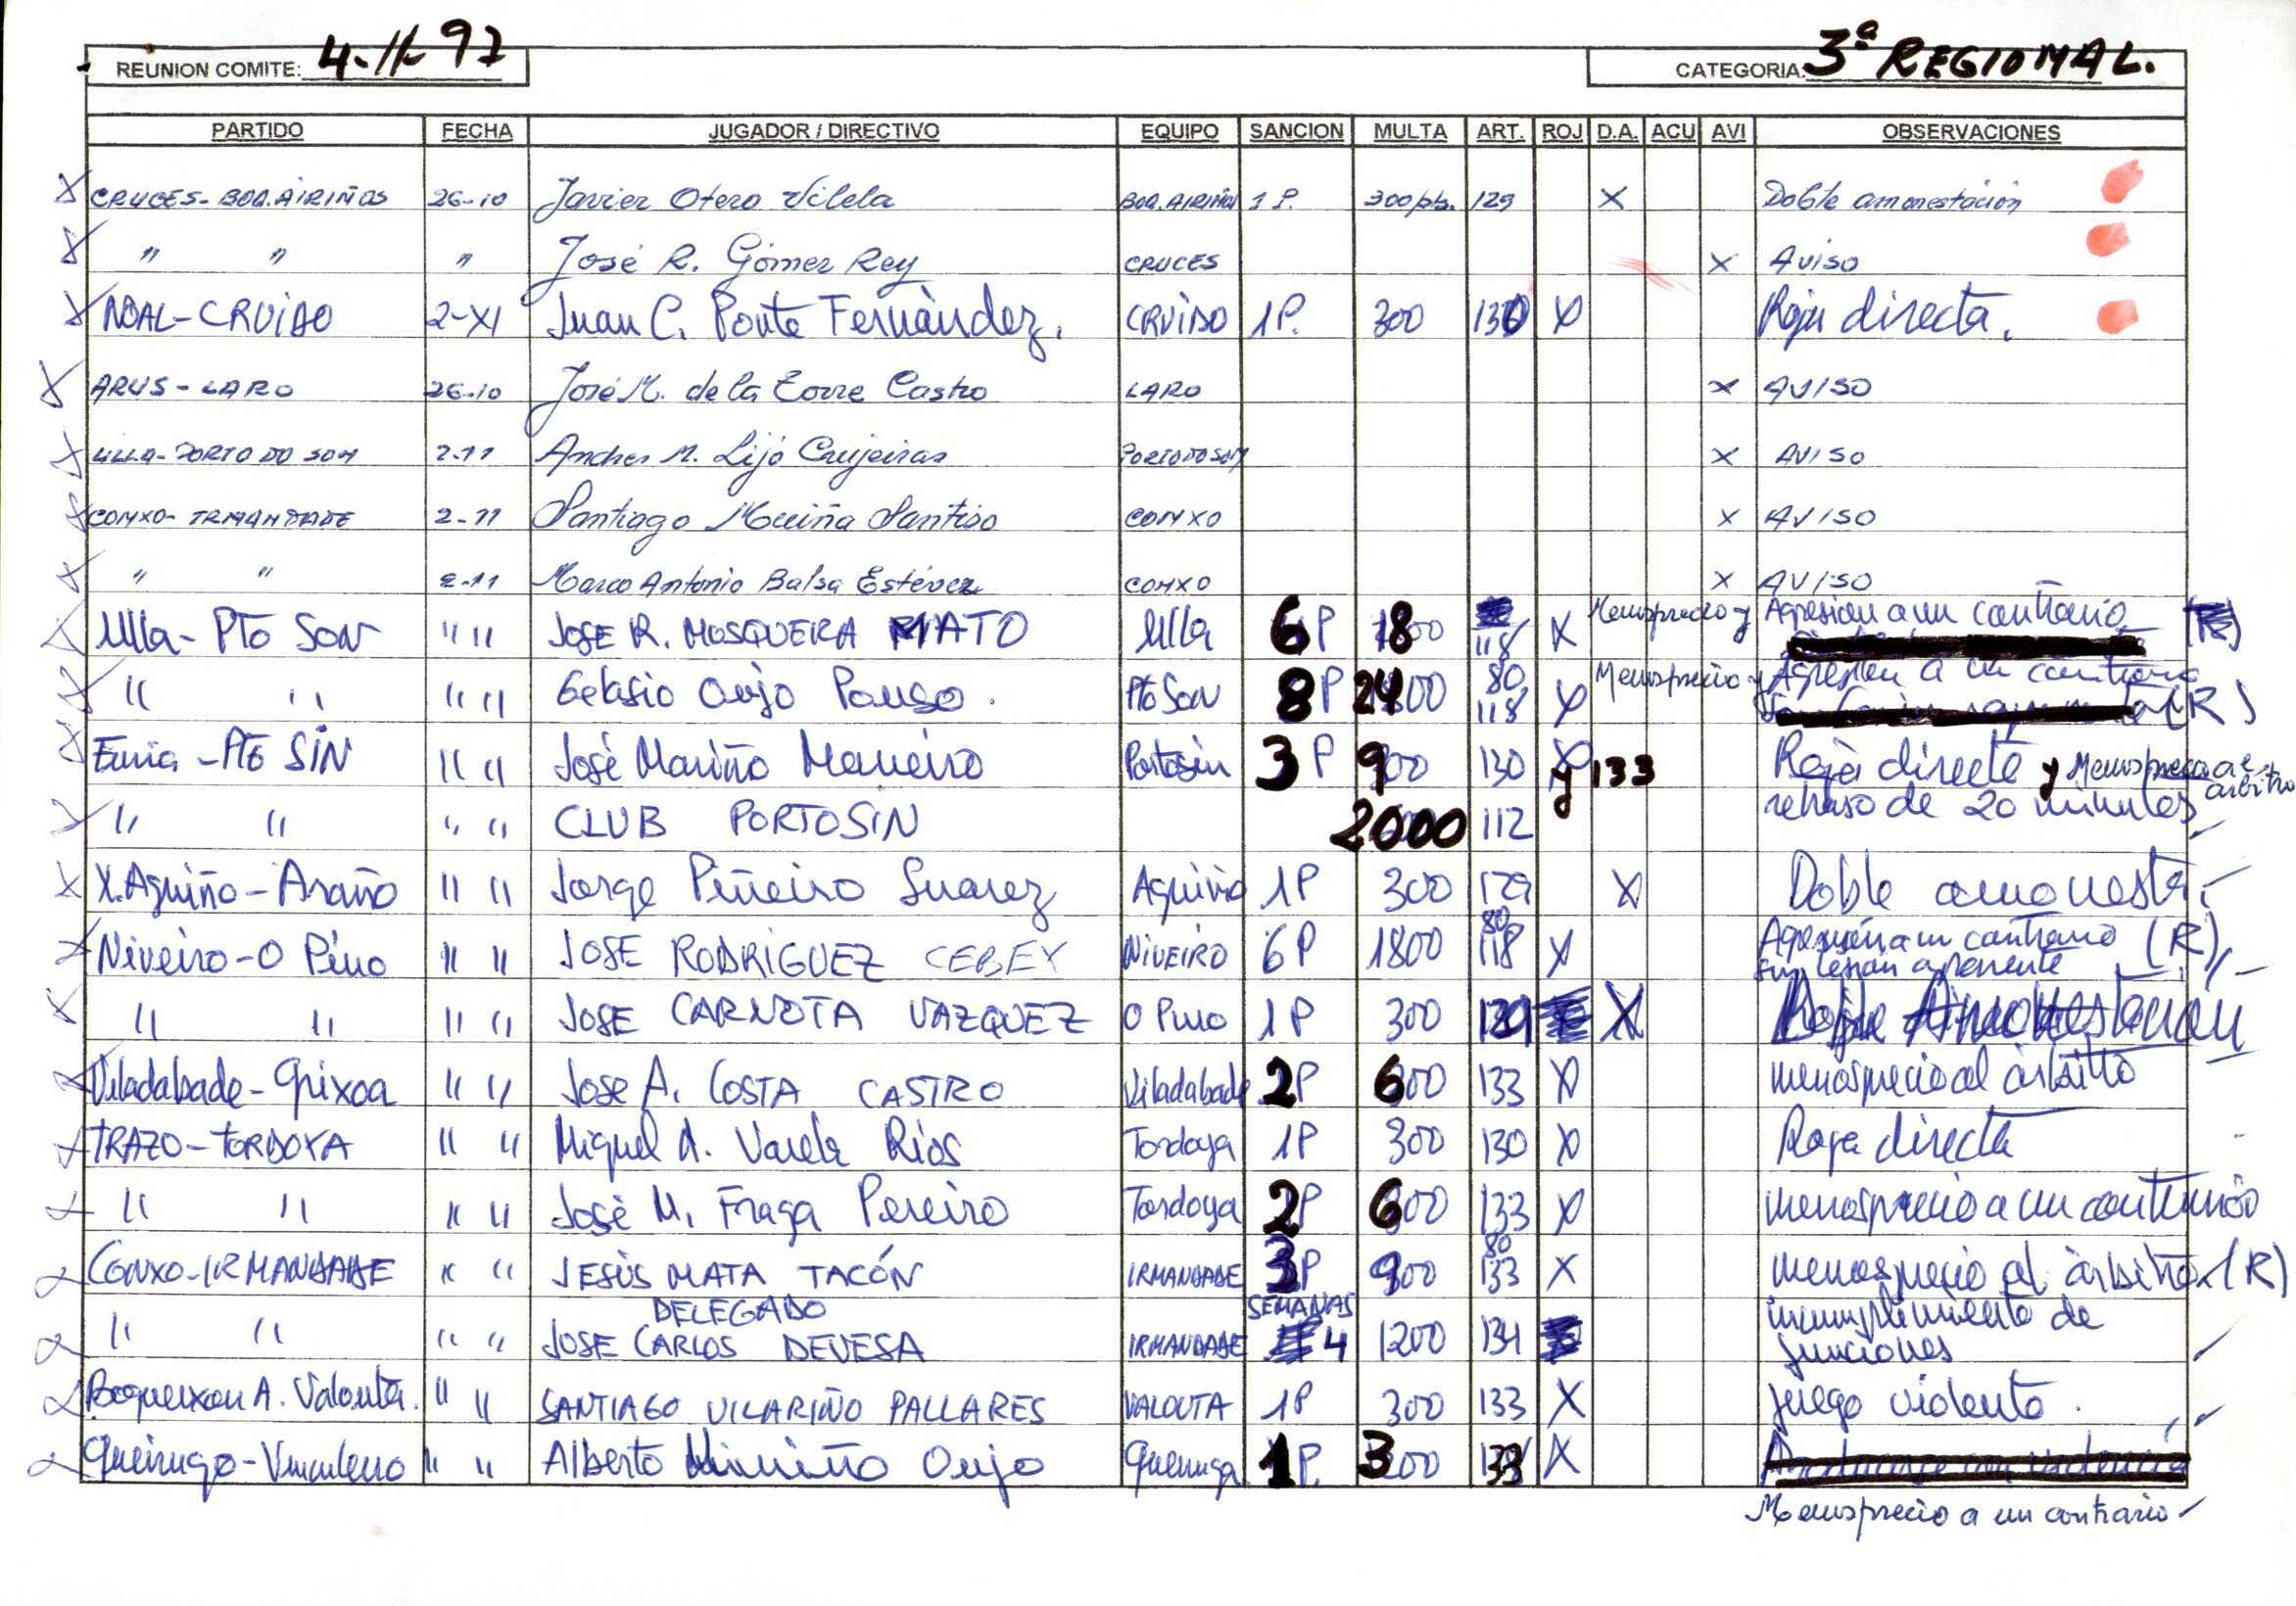 REUNION COMITE: 4-11-97
CATEGORIA: 3ª REGIONAL.
PARTIDO FECHA JUGADOR / DIRECTIVO EQUIPO SANCION MULTA ART. ROJ D.A. ACU AVI OBSERVACIONES
X CRUCES - BOQ. AIRIÑOS 26-10 Javier Otero Vilela BOQ. AIRIÑOS 1 P. 300 pts. 129 X Doble amonestación
X " " " José R. Gómez Rey CRUCES X Aviso
X NOAL - CRUIDO 2-XI Juan C. Ponte Fernàndez. CRUIDO 1P. 300 130 X Roja directa.
X ARUS - LARO 26-10 José M. de la Torre Castro LARO X AVISO
X ULLA - PORTO DO SON 2-11 Andres M. Lijó Crujeiras PORTO DO SON X AVISO
X CONXO - IRMANDADE 2-11 Santiago Muiña Santiso CONXO X AVISO
X " " 2-11 Marco Antonio Balsa Estévez CONXO X AVISO
X Ulla - Pto SON " " JOSE R. MOSQUERA MATO Ulla 6 P 1800 118 X Menosprecio y Agresion a un contrario
X " " " " Gelasio Oujo Pouso. Pto Son 8 P 2400 80 118 X Menosprecio y Agresion a un contrario (R)
X - Pto SIN " " José Mariño Maneiro Portosin 3 P 900 130 X y 133 Roja directa y Menosprecio al arbitro
X " " " " CLUB PORTOSIN 2000 112 retraso de 20 minutos
X X. Aguiño - Araño " " Jorge Piñeiro Suarez Aguiño 1P 300 129 X Doble amonest.
X Niveiro - O Pino " " JOSE RODRIGUEZ CEBEY NIVEIRO 6 P 1800 80 118 X Agresión a un contrario (R)
sin lesión aparente
X " " " " JOSE CARNOTA VAZQUEZ O Pino 1 P 300 129 X Doble Amonestación
X Viladabade - Grixoa " " Jose A. COSTA CASTRO Viladabade 2P 600 133 X menosprecio al àrbitro
X TRAZO - TORDOYA " " Miguel A. Varela Rios Tordoya 1P 300 130 X Roja directa
X " " " " José M. Fraga Pereiro Tordoya 2P 600 133 X menosprecio a un contrario
X CONXO - IRMANDADE " " JESÙS MATA TACÓN IRMANDADE 3P 900 80 133 X menosprecio al àrbitro. (R)
X " " " " DELEGADO JOSE CARLOS DEVESA IRMANDADE SEMANAS 4 1200 134 incumplimiento de
funciones
X Boqueixon A. Valouta. " " SANTIAGO VILARIÑO PALLARES VALOUTA 1P 300 133 X juego violento.
X Queiruga - " " Alberto Oujo Queiruga 1 P. 300 133 X
Menosprecio a un contrario